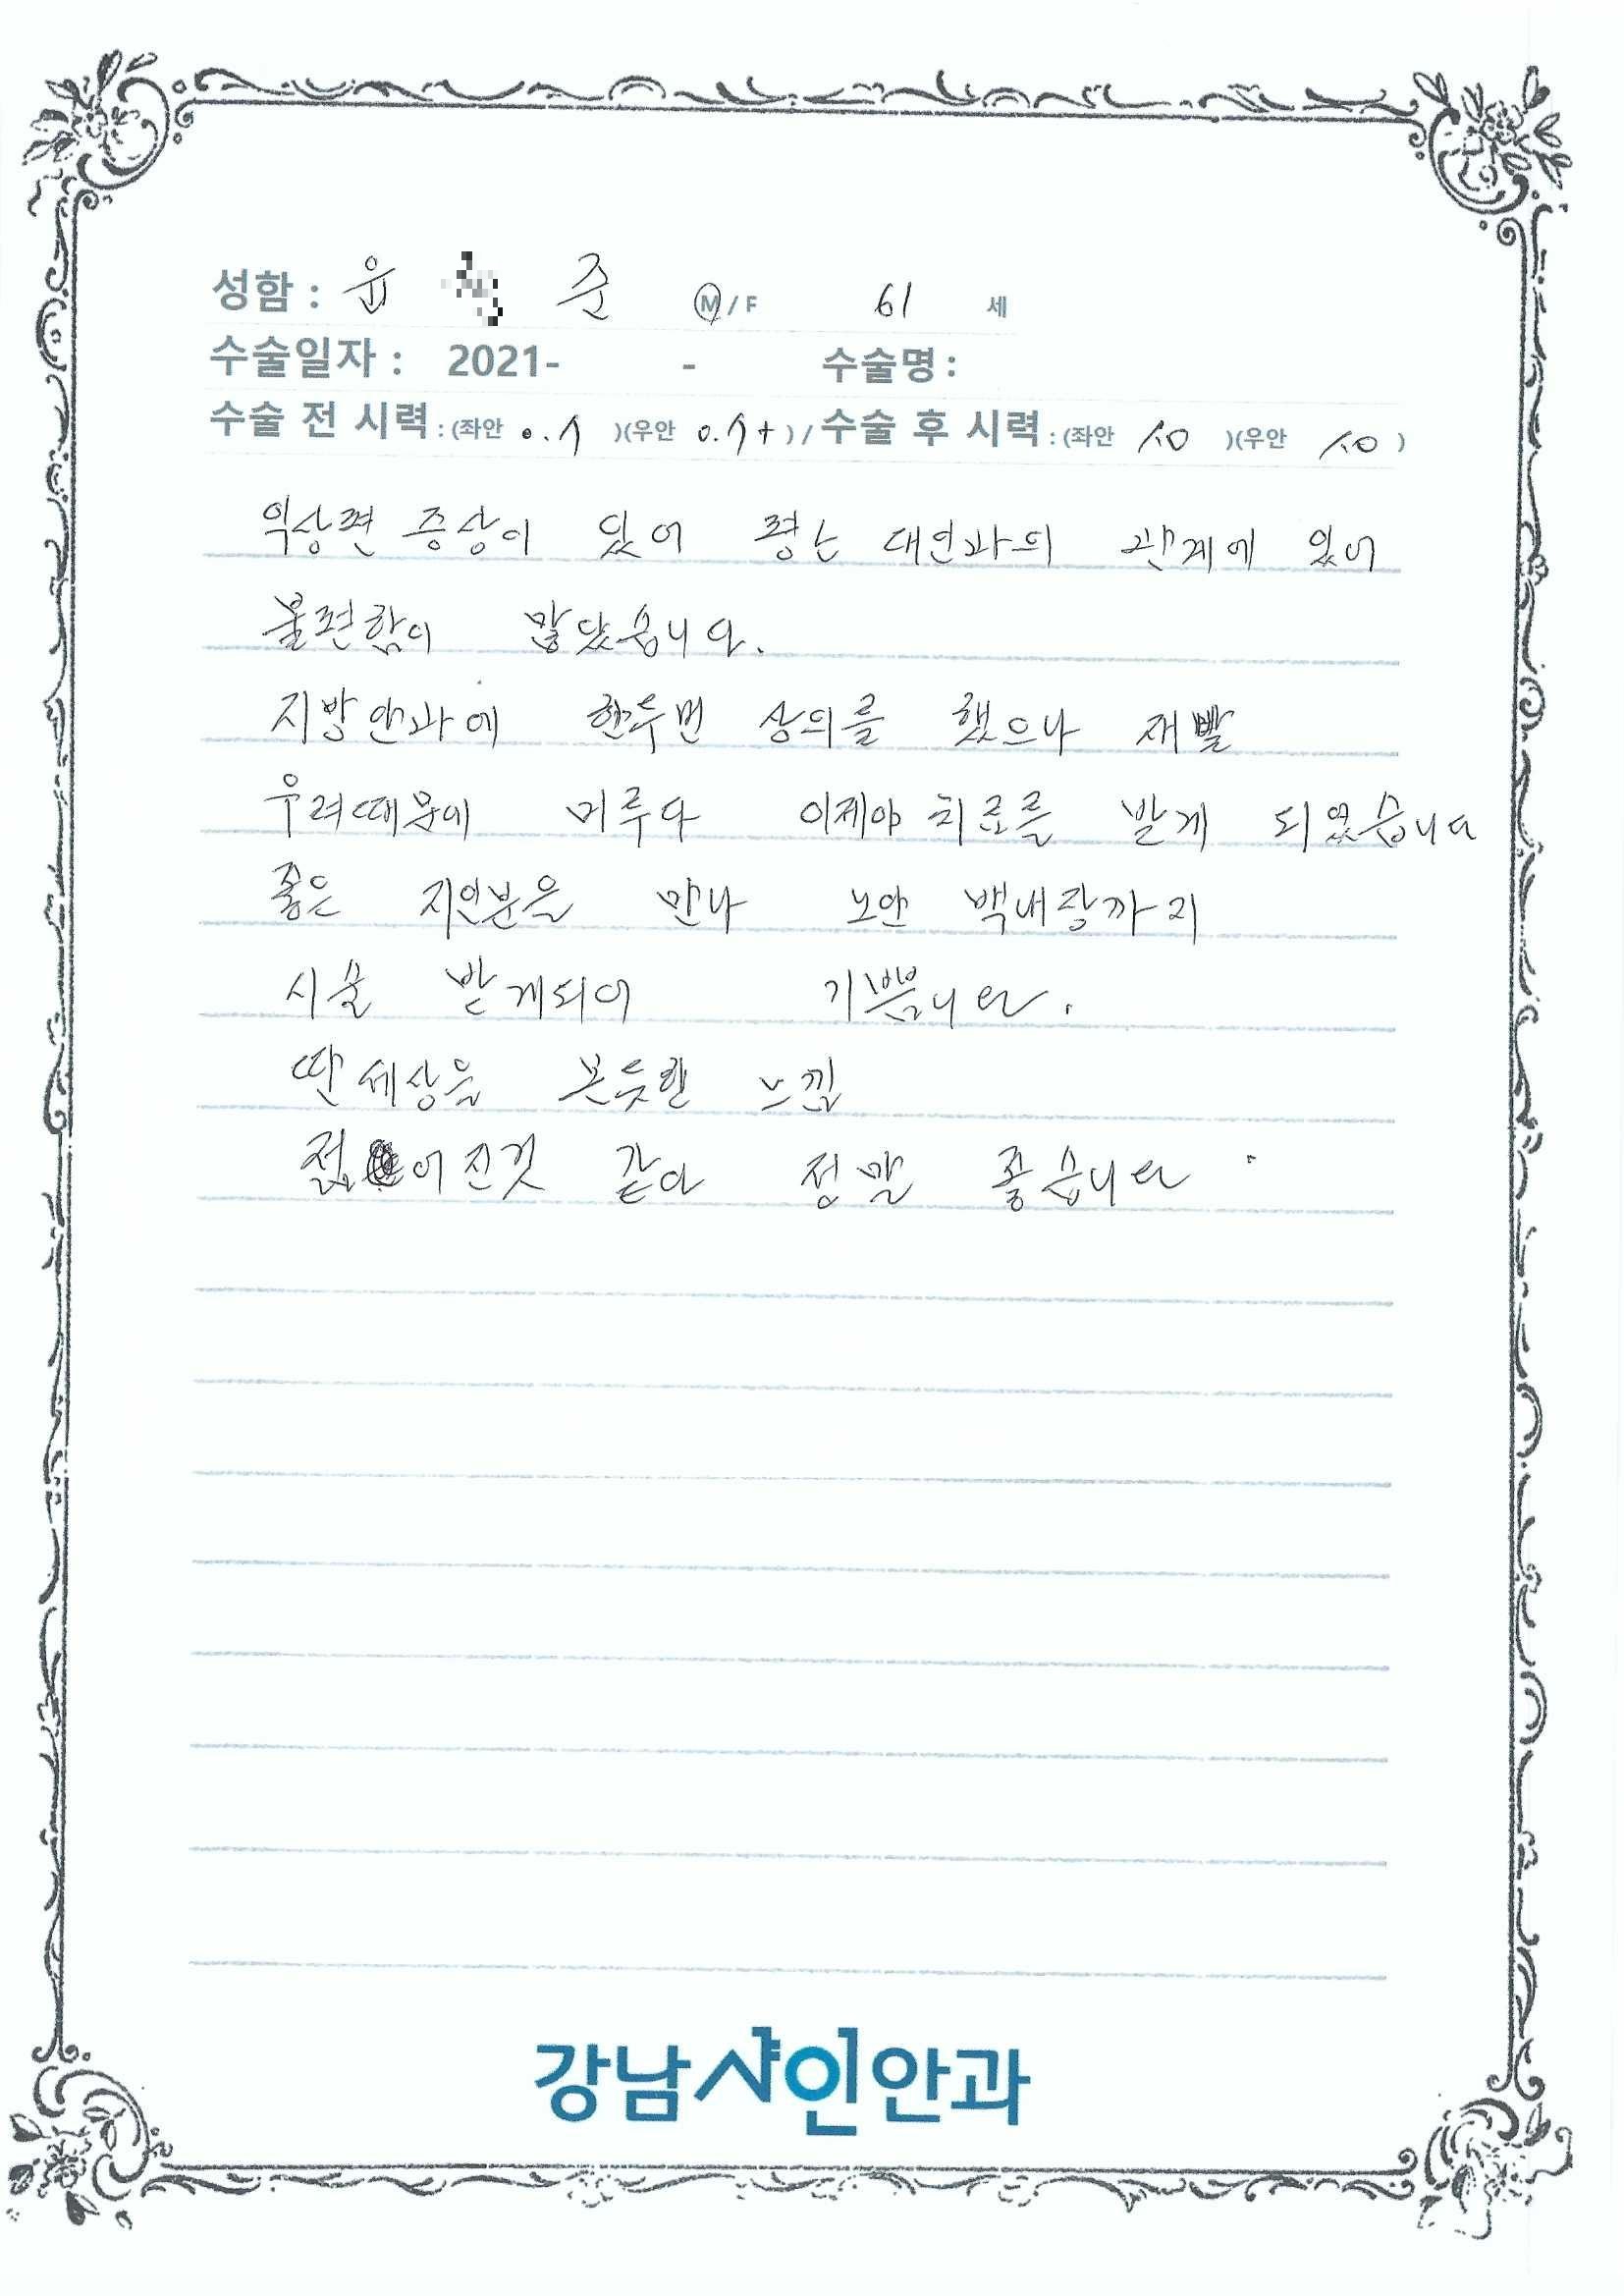 성함 : 윤 준 M / F 61 세
수술일자 : 2021- - 수술명 :
수술 전 시력 : (좌안 )(우안 ) / 수술 후 시력 : (좌안 1.0 )(우안 1.0 )
익상편 증상이 있어 평는 대인과의 관계에 있어
불편함이 많았습니다.
지방안과에 한두번 상의를 했으나 재발
우려때문에 머루다 이제야 치료를 받게 되었습니다
좋은 지인분을 만나 노안 백내장까지
시술 받게되어 기쁩니다.
딴세상을 본듯한 느낌
젊어진것 같아 정말 좋습니다.
강남샤인안과